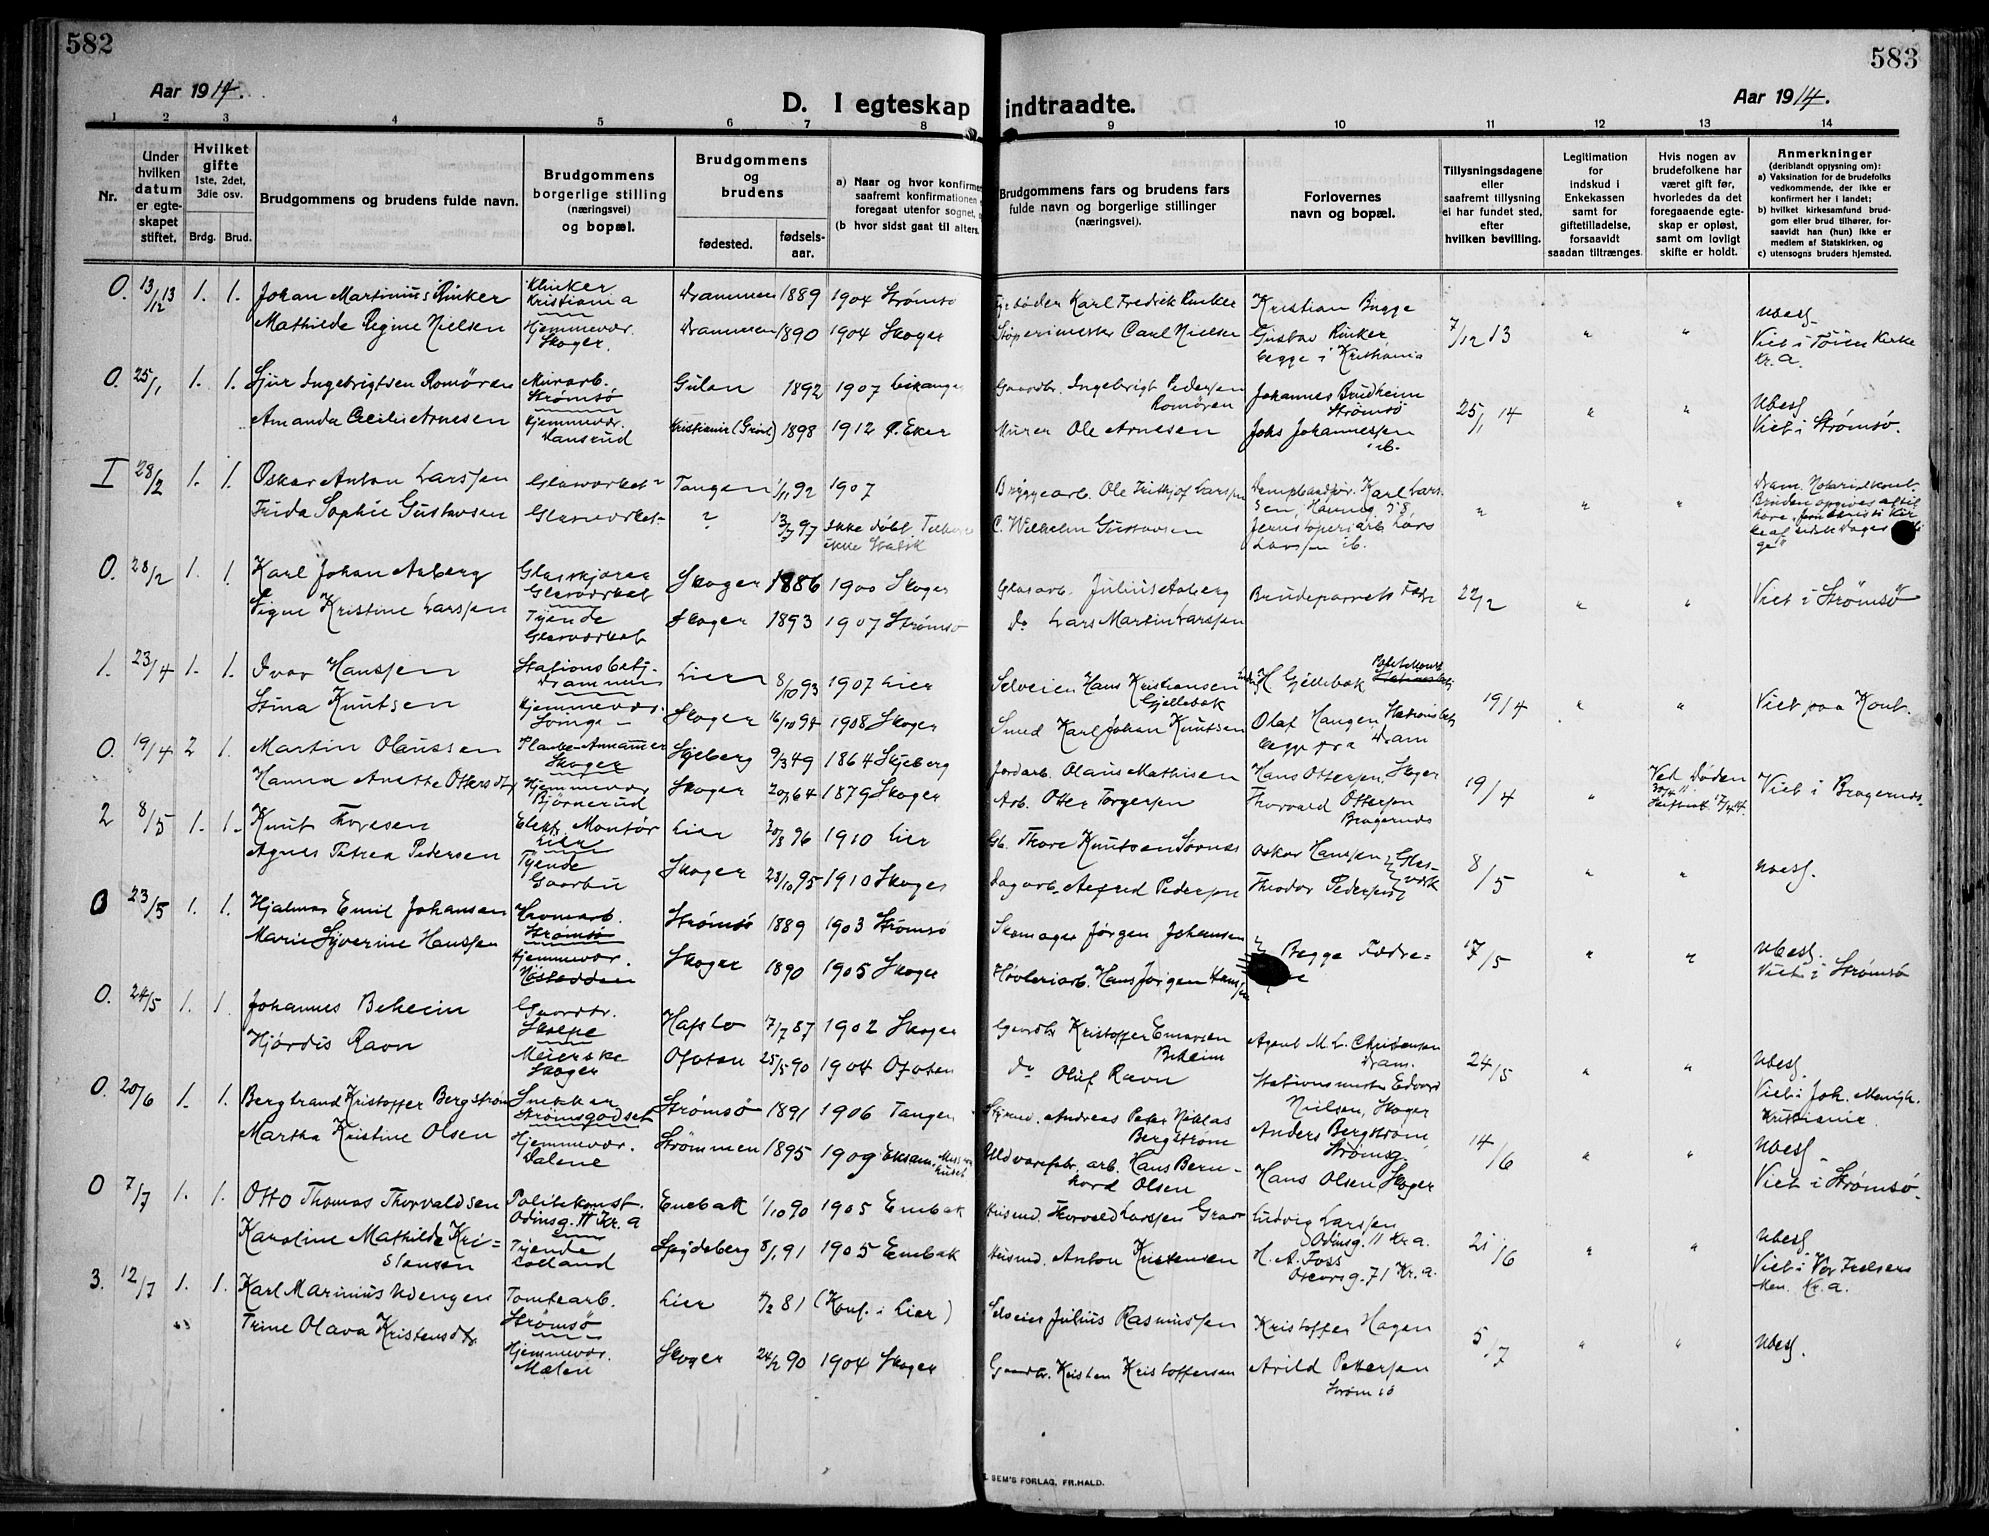 582
Aar 1914.
D. I egteskap
1 2 3 4 5 6 7 8
Nr.
Under hvilken datum er egte-skapet stiftet.
Hvilket gifte 1ste, 2det, 3die osv.
Brdg. Brud.
Brudgommens og brudens fulde navn.
Brudgommens borgerlige stilling (næringsvei) og bopæl.
Brudgommens og brudens
fødested. fødsels-aar.
a) Naar og hvor konfirmer
saafremt konfirmationen
foregaat utenfor sognet,
(b hvor sidst gaat til alters.
O. 13/12 13 1. 1. Johan Martinius Rinker Klinker Kristiania Drammen 1889 1904 Strømsø
Mathilde Regine Nielsen Hjemmevær. Skoger. Drammen 1890 1904 Skoger
O. 25/1 1. 1. Sjur Ingebrigtsen Romøren Murarb. Strømsø Gulan 1892 1907
Amanda Cecilie Arnesen Hjemmevær. 1898 1912 Eker
I 28/2 1. 1. Oskar Anton Larssen Glasværket Tangen 1/11 92 1907
Frida Sophie Gustavsen Glasværket ? 13/7 97 ikke døbt
O. 28/2 1. 1. Karl Johan Aaberg Glasskjærer Glasværket Skoger 1886 1900 Skoger
Signe Kristine Larssen Tjende Glasværket Skoger 1893 1907 Strømsø
1. 23/4 1. 1. Ivar Hanssen Stationsbetj. Drammen Lier 8/10 93 1907 Lier
Stina Knutsen Hjemmevær. Skoger 16/10 94 1908 Skoger
O. 19/4 2 1. Martin Olaussen Skoger Skjeberg 9/3 49 1864 Skjeberg
Hanna Anette Ottersdtr Hjemmevær Bjørnerud Skoger 64 1879 Skoger
2 8/5 1. 1. Knut Thoresen Elektr. Montør Lier Lier 20/8 96 1910 Lier
Agnes Petrea Pedersen Tjende Gaarbu Skoger 28/10 95 1910 Skoger
O 23/5 1. 1. Hjalmar Emil Johansen Strømsø Strømsø 1889 1903 Strømsø
Marie Syverine Hanssen Hjemmevær. Skoger 1890 1905 Skoger
O. 24/5 1. 1. Johannes Beheim Gaardbr. Hafslo 7/7 87 1902 Skoger
Hjørdis Ravn Meierske Skoger Ofoten 25/5 90 1904 Ofoten
O. 20/6 1. 1. Bergtrand Kristoffer Bergstrøm Snekker Strømsgodset Strømsø 1891 1906 Tangen
Martha Kristine Olsen Hjemmevær. Dalene Strømmen 1895 1909
O 7/7 1. 1. Otto Thomas Thorvaldsen Politikonst. Odinsg. 11 Kr. a Enebak 1/10 90 1905 Enebak
Karoline Mathilde Kri=
stensen Tjende Spydeberg 8/1 91 1905 Enebak
3. 12/7 1. 1. Karl Marinius Udengen Tomtearb. Strømsø Lier 4/2 81 (Konf. i Lier)
Trine Olava Kristensdtr Hjemmevær. Mælen Skoger 24/2 90 1904 Skoger
583
Aar 1914.
indtraadte.
9 10 11 12 13 14
Brudgommens fars og brudens fars fulde navn og borgerlige stillinger (næringsvei).
Forlovernes navn og bopæl.
Tillysningsdagene eller saafremt tillysning ei har fundet sted, efter hvilken bevilling.
Legitimation for indskud i Enkekassen samt for giftetilladelse, forsaavidt saadan tiltrænges.
Hvis nogen av brudefolkene har været gift før, hvorledes da det foregaaende egte-skap er opløst, samt om lovligt skifte er holdt.
Anmerkninger
(deriblandt opysning om):
a) Vaksination for de brudefolks vedkommende, der ikke er konfirmert her i landet;
b) hvilket kirkesamfund brud-gom eller brud tilhører, for-saavidt han (hun) ikke er medlem af Statskirken, og
c) utensogns bruders hjemsted.
Karl Fredrik Rinker Kristian Bugge
Støperimester Carl Nielsen Gustav Rinker begge i Kristiania 7/12 13 " " ubesl. Viet i Tøien Kirke Kr.a.
Gaardbr. Ingebrigt Pedersen Romøren Johannes Brudheim Strømsø
Murer Ole Arnesen Johs Johannessen ib. 25/1 14 " " Ubesl. Viet i Strømsø.
Bryggearb. Ole Frithjof Larssen Karl Lars-
sen, Havneg 58
C. Wilhelm Gustavsen Lars Larssen ib. " " " Dram. Notarialkont. Bruden opgives at til-
høre "Jesu Kristi Kir
ke af sidste Dages
ge"
Glasarb. Julius Aaberg Brudeparrets Fædre 22/2 " " Viet i Strømsø
Do Lars Martin Larssen
Selveier Hans Kristiansen Gjellebæk H Gjellebæk
Smed Karl Johan Knutsen Olaf Hangen, Stationsbetj begge fra Dram 19/4 " " Viet paa Kont.
Jordarb. Olaus Mathisen Hans Ottersen, Skoger
Arb. Otter Torgersen Thorvald Ottersen Bragernæs 19/4 " Ved Døden Viet i Bragernæs
Gb. Thore Knutsen Oskar Hanssen Glas-
værk
Dagarb. Alfred Pedersen Theodor Pedersen 8/5 " " ubesl.
Skomager Jørgen Johansen Begge Fædre-
ne 17/5 " " ubesl. Viet i Strømsø
Høvleriarb. Hans Jørgen Hanssen
Gaardbr Kristoffer Enarsen Beheim Agent M. L. Christensen Dram.
do Oluf Ravn Stationsmester Edvard Nielsen, Skoger 24/5 " " ubesl. Viet i Joh. Menigh. Kristiania.
Andreas Peter Niklas Bergstrøm Anders Bergstrøm Strømsg.
Uldvarefabr. arb. Hans Bern-
hard Olsen Hans Olsen Skoger 14/6 " " ubesl. Viet i Strømsø.
Husmd. Thorvald Larssen Ludvig Larssen Odinsg. 11 Kr. a.
Husmd. Anton Kristensen H. A. Foss Oscarsg. 71 Kr. a. 21/6 " " ubesl. Viet i Vor Frelsers Men. Kr. a.
Selveier Julius Rasmussen Kristoffer Hagen
Gaardbr. Kristen Kristoffersen Arild Pettersen Strømsø 5/7 " " ubesl.
SEM'S FORLAG, FR.HALD.